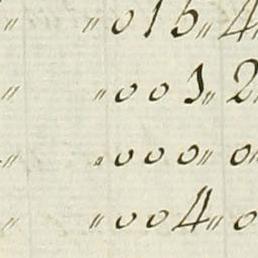 〃 〃 0 1 5 〃 4
〃 〃 0 0 3 〃 2
〃 〃 0 0 0 〃 0
〃 〃 0 0 4 〃 0